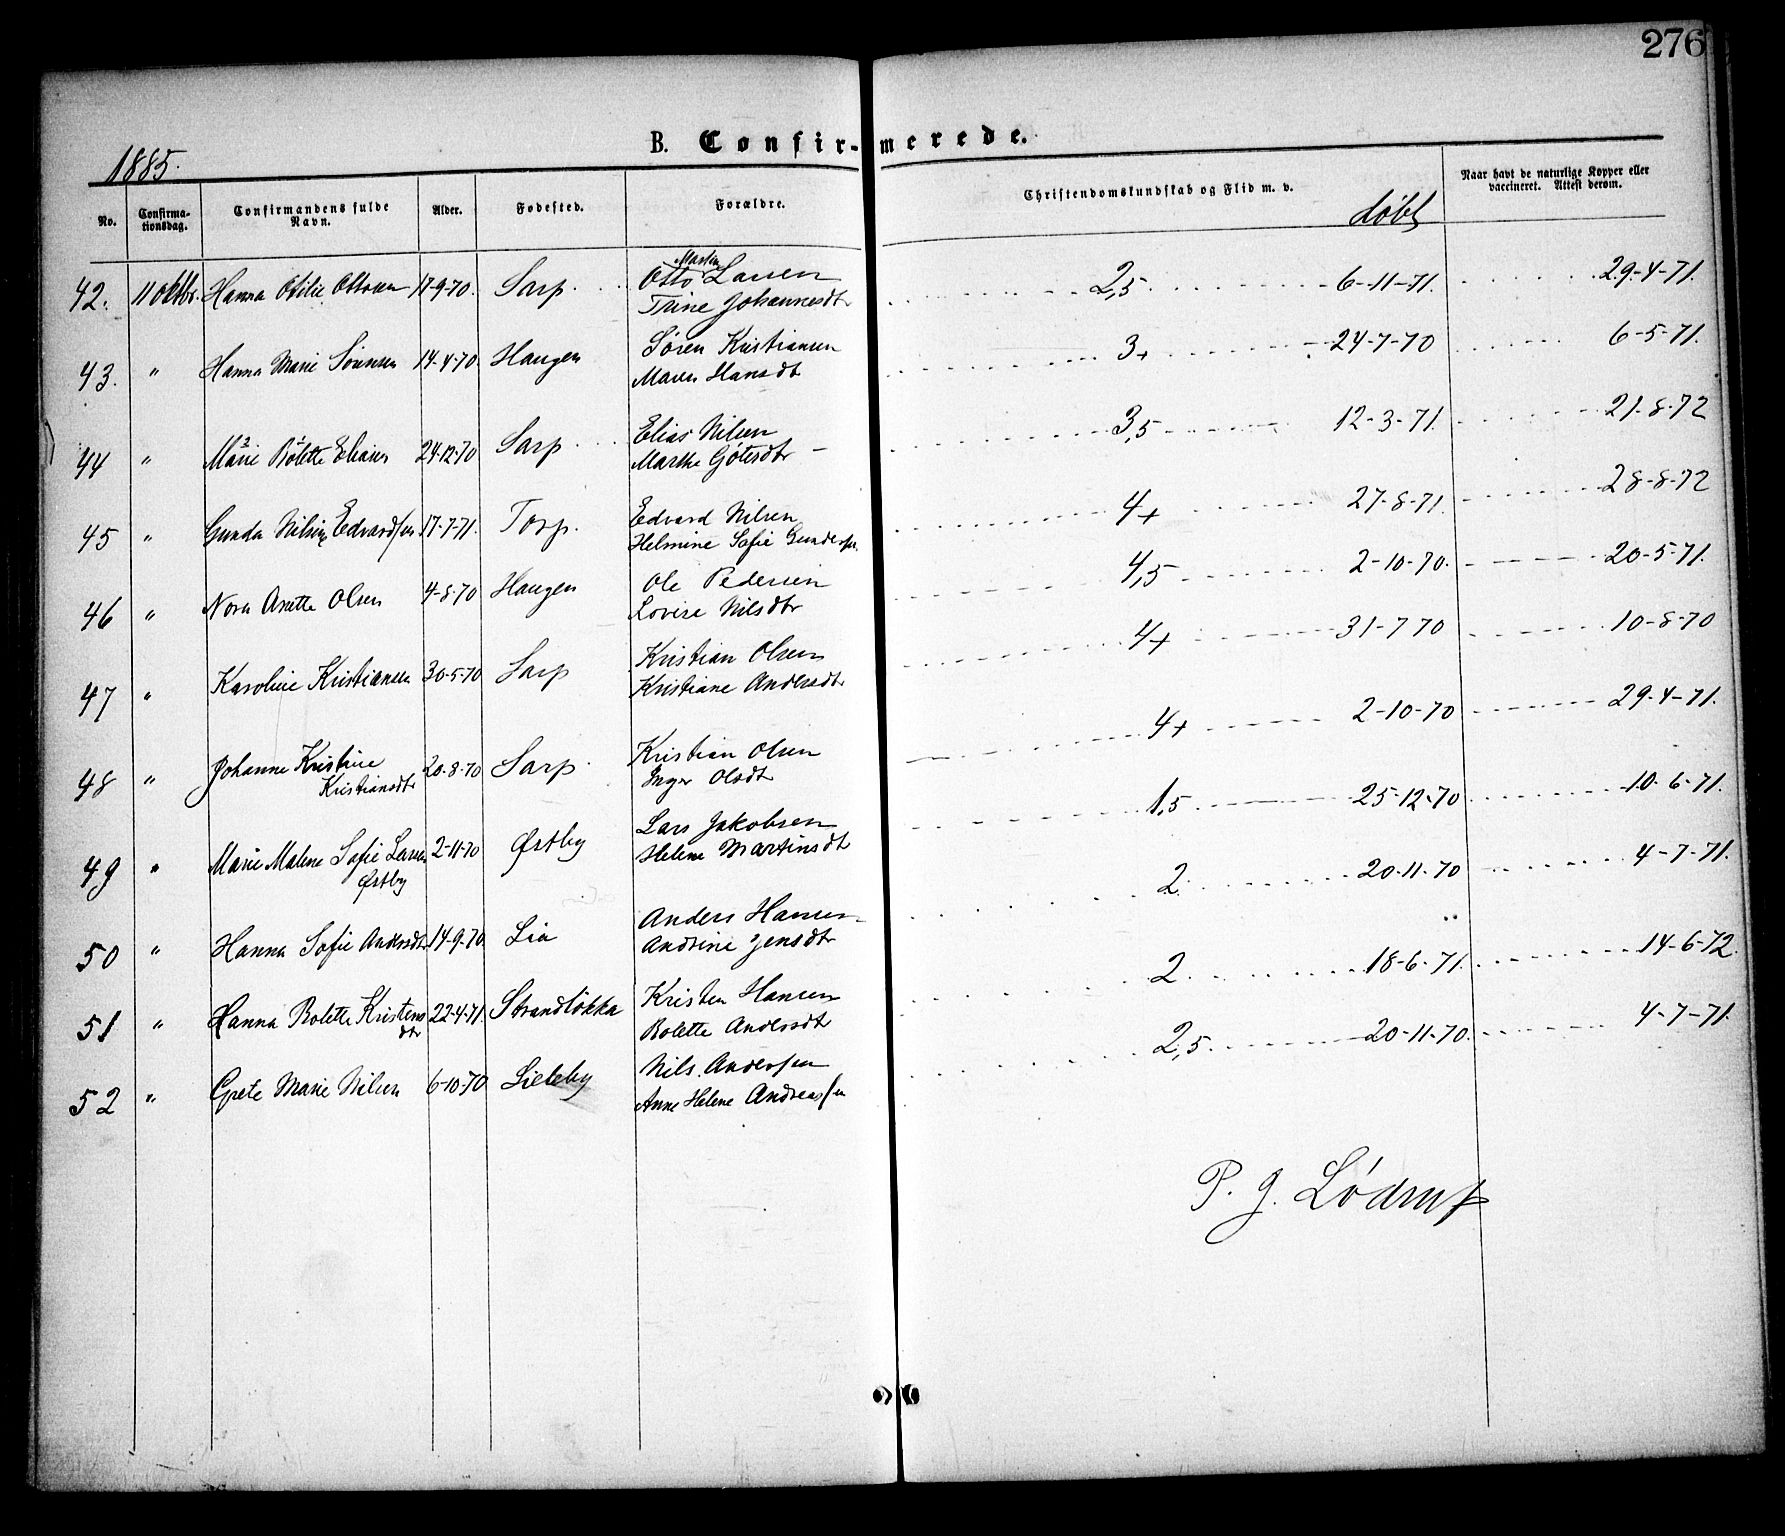 276
B. Confirmerede.
1885.
No. Confirmationsdag. Confirmandens fulde Navn. Alder. Fødested. Forældre. Christendomskundskab og Flid m. v. døbt Naar havt de naturlige Kopper eller vaccineret. Attest derom.
42. 11 oktbr. Hanna Otilie Ottosen 17-9-70. Sarp. Otto Martin Larsen 2,5 6-11-71. 29-4-71.
Trine Johannesdtr
43. " Hanna Marie Sørensen 14-4-70. Haugen Søren Kristiansen 3+ 24-7-70 6-5-71.
Maren Hansdtr
44 " Marie Bolette Eliasen 24-12-70 Sarp Elias Nilsen 3,5 12-3-71. 21-8-72
Marthe
45 " Gunda Edvardsen 17-7-71. Torp. Edvard Nilsen 4+ 27-8-71. 28-8-72
Helmine Sofie Gundersen
46 " Nora Anette Olsen 4-8-70 Haugen Ole Pedersen 4,5 2-10-70. 20-5-71.
Lovise Nilsdtr
47 " Karoline Kristiansen 30-5-70 Sarp Kristian Olsen 4+ 31-7 70 10-8-70
Kristiane Andersdtr
48 " Johanne Kristine 20-8-70 Sarp Kristian Olsen 4+ 2-10-70 29-4-71.
Kristiansdtr Inger Olsdtr
49 " Marie Malene Sofie Larsen 2-11-70 Østby Lars Jakobsen 1,5 25-12-70 10-6-71.
Østby Helene Martinsdtr
50 " Hanna Sofie Andersdtr 14-9-70. Lia Anders Hansen 2 20-11-70 4-7-71.
Andrine Jensdtr
51 " Hanna Bolette Kristens 22-4-71. Strandløkka Kristen Hansen 2 18-6-71. 14-6-72.
dtr Bolette Andersdtr
52 " Grete Marie Nilsen 6-10-70 Lieleby Nils Andersen 2,5 20-11-70. 4-7-71.
Anne Helene Andreassen
P. J. Lødrup